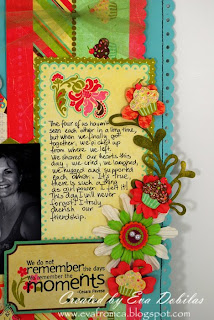 The four of us haven't
seen each other in a long time,
but when we finally got
together, we picked up
from where we left.
We shared our hearts this
day, we cried, we laughed,
we hugged and supported
each other. It's true,
there is such a thing
as girl power. I felt it!
This day I will never
forget! I truly
cherish our
friendship.
We do not
remember the days
We remember the
moments
Cesare Pavese
Created by Eva Dobilas
www.evatronica.blogspot.com